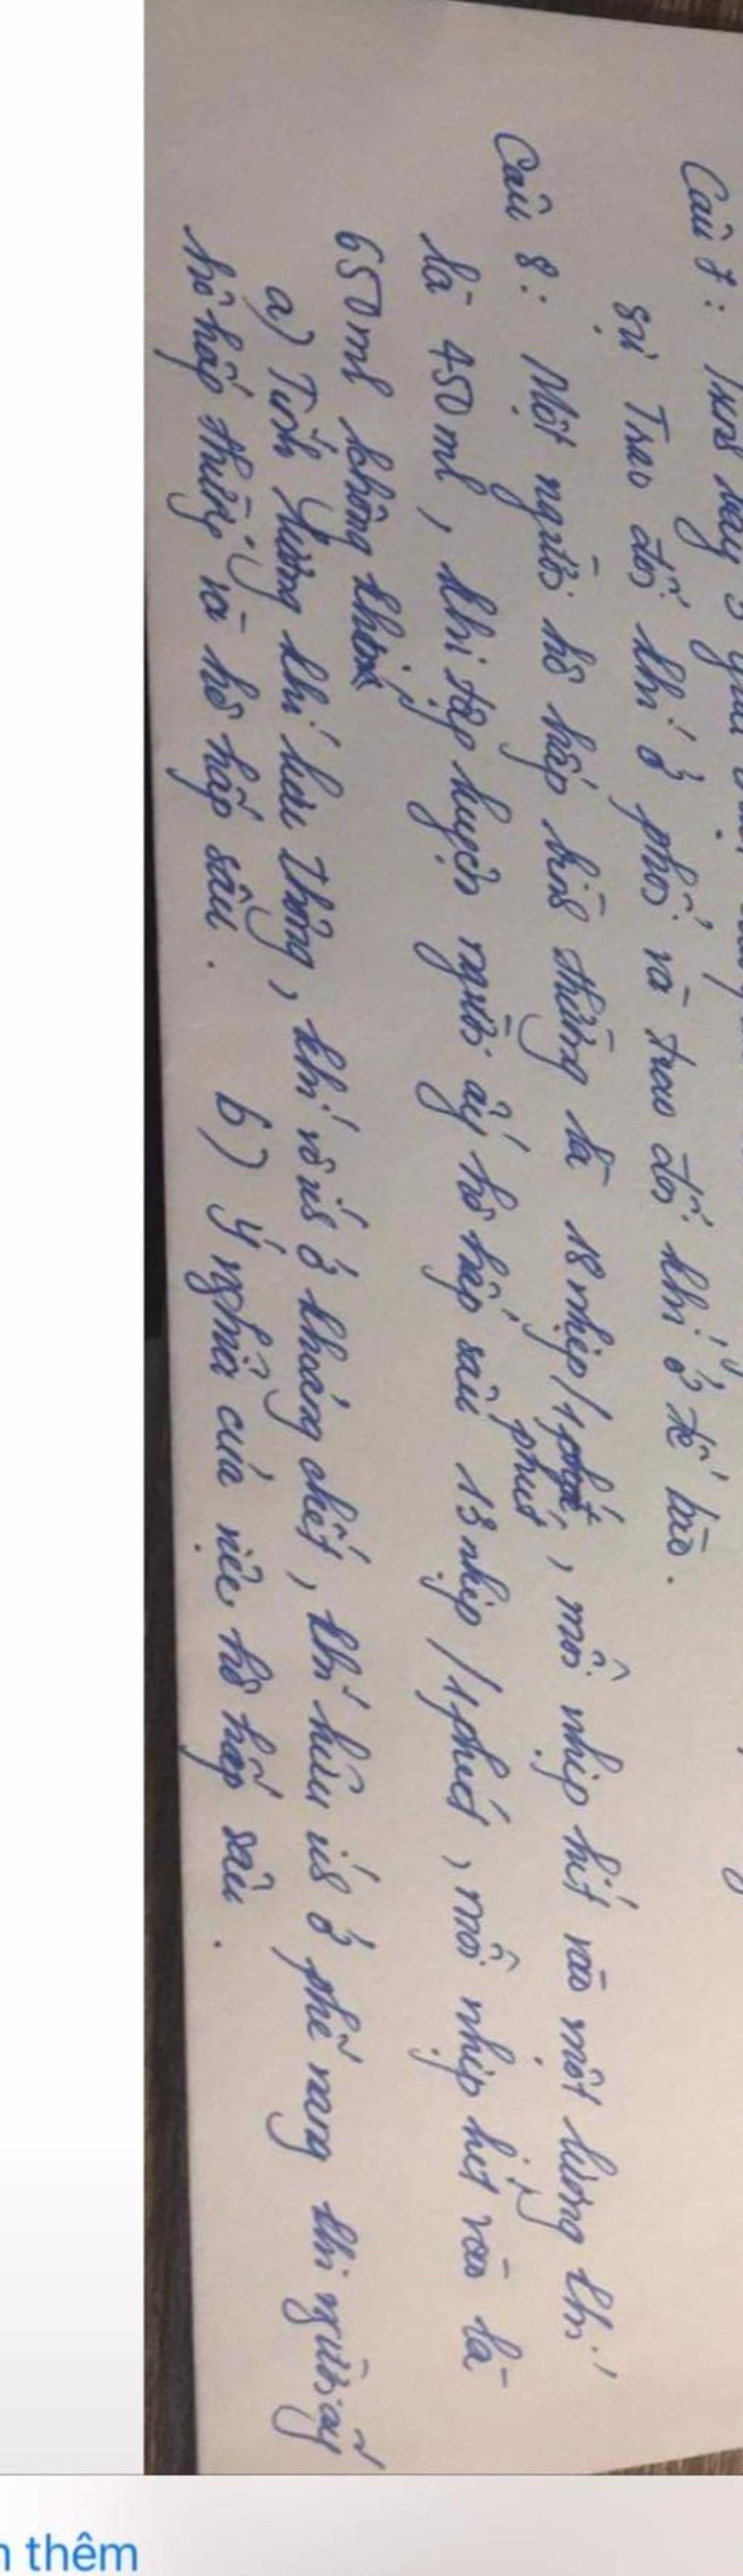 Câu 7: Trình bày
sự Trao đổi khí ở phổi và trao đổi khí ở tế bào.
Câu 8: Một người hô hấp bình thường là 18 nhịp/1 phút, mỗi nhịp hít vào một lượng khí
là 450 ml, khi tập luyện người ấy hô hấp sâu 13 nhịp/1 phút, mỗi nhịp hít vào là
650 ml không khí
a) Tính lượng khí lưu thông, khí vô ích ở khoảng chết, khí hữu ích ở phế nang khi người ấy
hô hấp thường và hô hấp sâu. b) Ý nghĩa của việc hô hấp sâu.
thêm